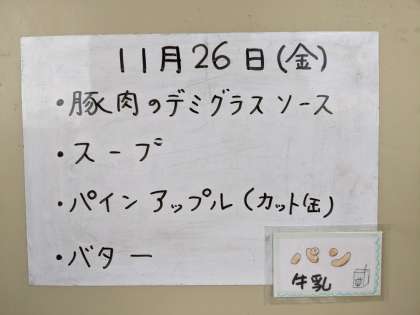 11月26日(金)
・豚肉のデミグラスソース
・スープ
・パインアップル(カット缶)
・バター
パン
牛乳